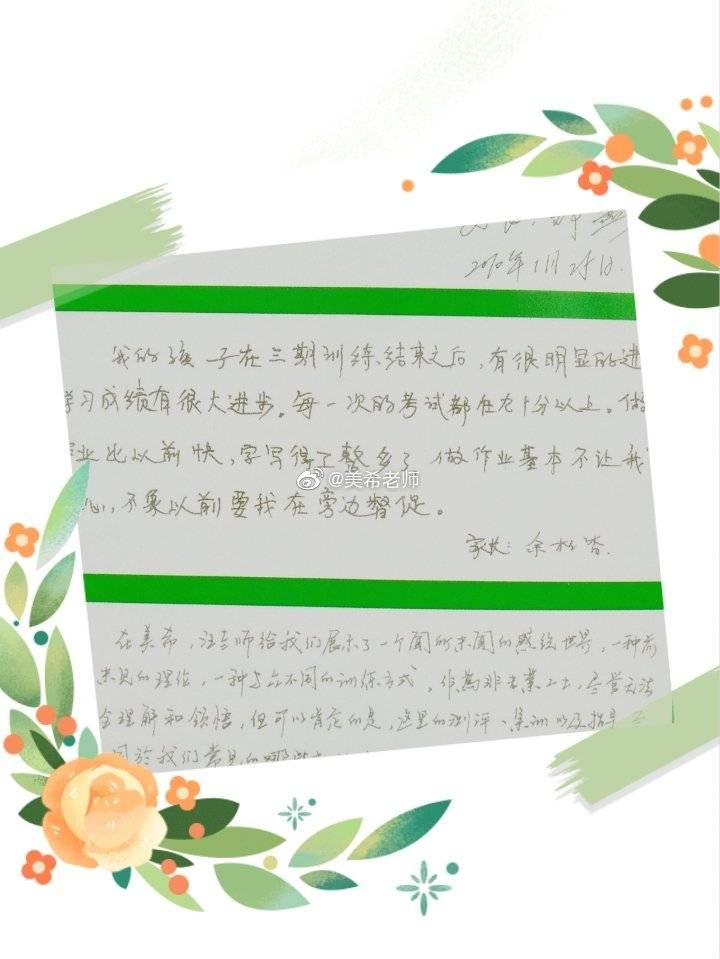 2010年1月25日.
我的孩子在三期训练结束之后,有很明显的进
学习成绩有很大进步。每一次的考试都在九十分以上。做
业比以前快,字写得了整多了 做作业基本不让我
@美希老师
心,不象以前要我在旁边督促。
家长:余
在美希,汪老师给我们展示了一个闻所未闻的感统世界,一种前
未见的理论,一种与众不同的训练方式。作為非专业人士,尽管无法
全理解和领悟,但可以肯定的是,这里的测评、集训以及指导
同於我们常见的哪些